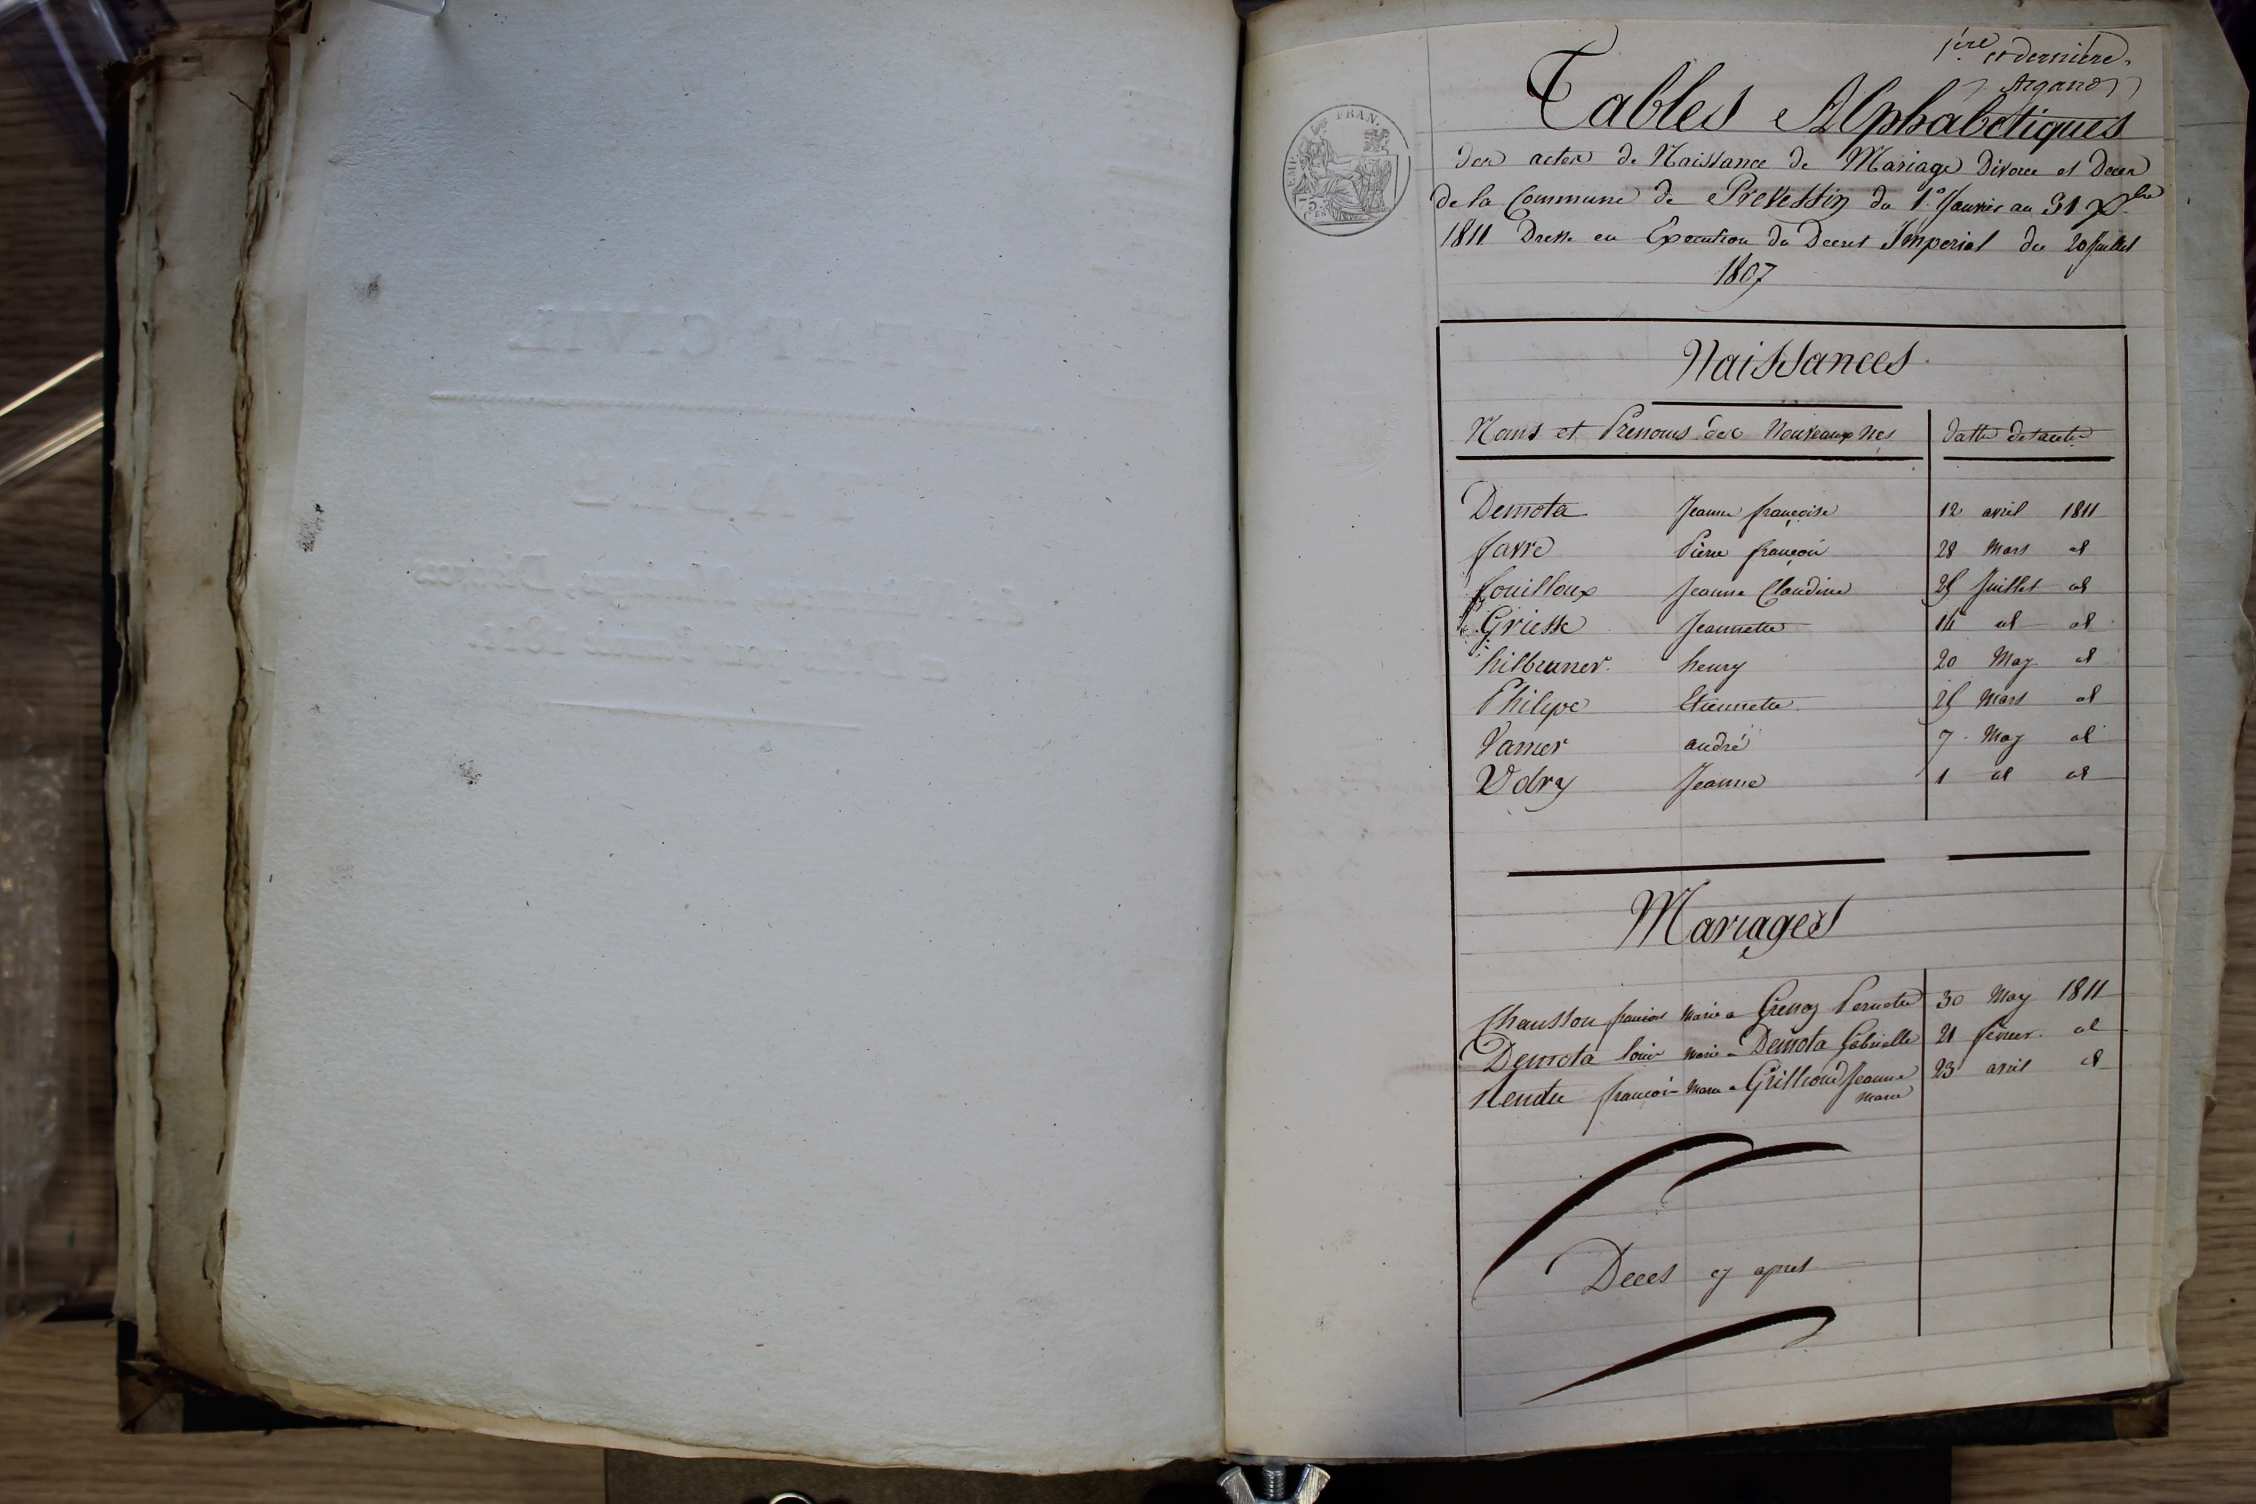 ÉTAT CIVIL.
TABLE
des Naissances, Mariages, Divorces
et Décès, pour l'année 1811.
1ère et dernière.
Argand
Tables Alphabetiques
des actes de Naissance de Mariage Divorce et Deces
de la Commune de Prevessin du 1er Janvier au 31 Xbre
1811 Dressé en Execution du Decret Imperial du 20 Juillet
1807
FRAN.
Naissances
Noms et Prenoms des Nouveaux nes Datte de l'acte
Demota Jeanne françoise 12 avril 1811
favre Pierre françois 28 Mars id
fouilloux Jeanne Claudine 25 Juillet id
Griesse Jeannette 14 id id
hilbruner henry 20 May id
Philipe Etiennette 25 Mars id
Vaner andré 7 May id
Vdry Jeanne 1 id id
Mariages
Chausson françois Marie a Grenoz Pernette 30 May 1811
Demota louis Marie a Demota Gabrielle 21 fevrier id
Rendu françois Marie a Grilliond Jeanne 23 avril id
Marie
Deces cy apres